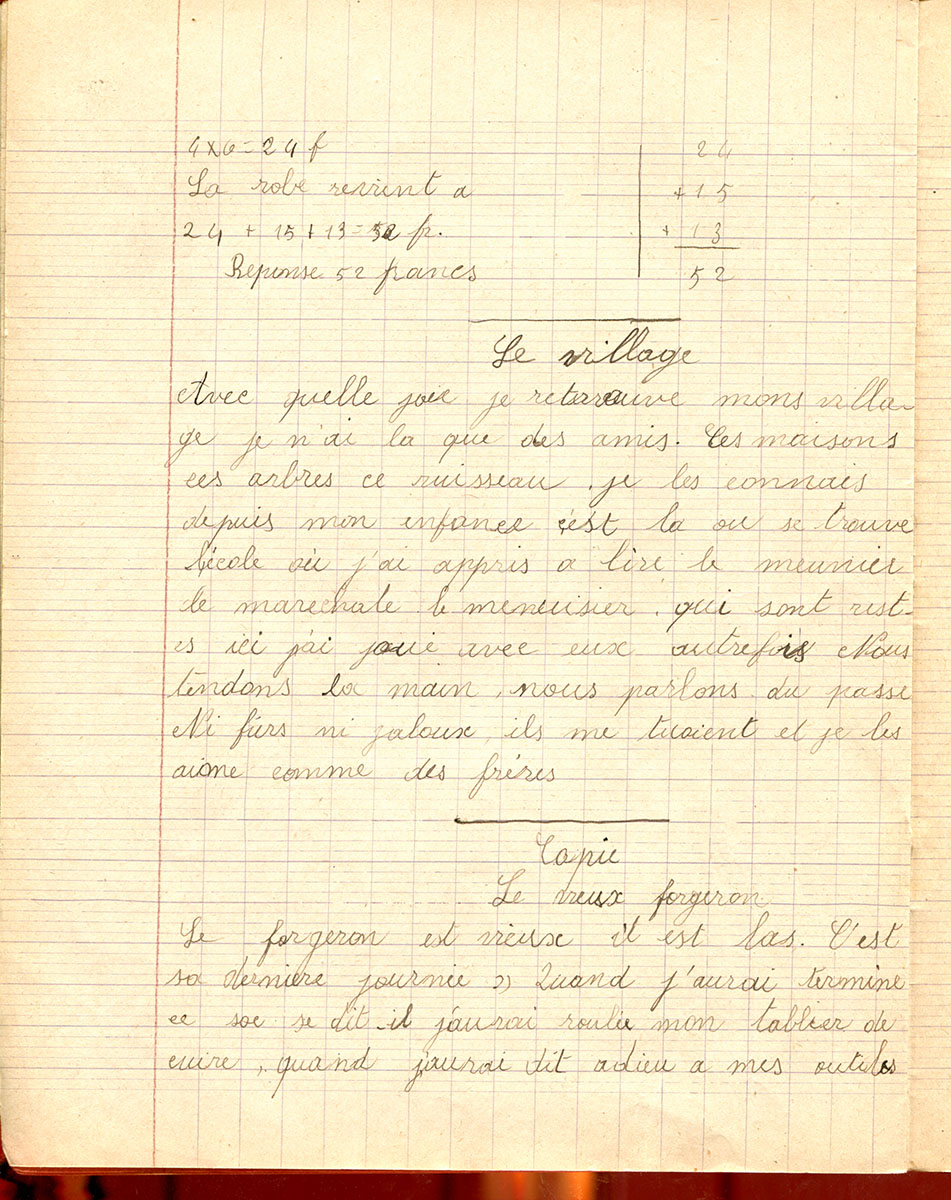 4x6=24 f
24
La robe revient a
+15
24 + 15 + 13 = 52 fr.
+ 13
Reponse 52 francs
52
Le village
Avec quelle joie je retrouve mons villa-
ge je n'ai la que des amis. Ces maisons
ces arbres ce ruisseau, je les connais
depuis mon enfance c'est la ou se trouve
l'école où j'ai appris a lire le meunier
le marechale le menuisier, qui sont rest-
es ici j'ai joué avec eux autrefois Nous
tendons la main, nous parlons du passe
Ni fiers ni jaloux, ils me tuoient et je les
aime comme des fréres
Copie
Le vieux forgeron
Le forgeron est vieux il est las. C'est
sa derniere journée » Quand j'aurai termine
ce soc se dit-il j'aurai roulée mon tablier de
cuire, quand j'aurai dit adieu a mes outiles